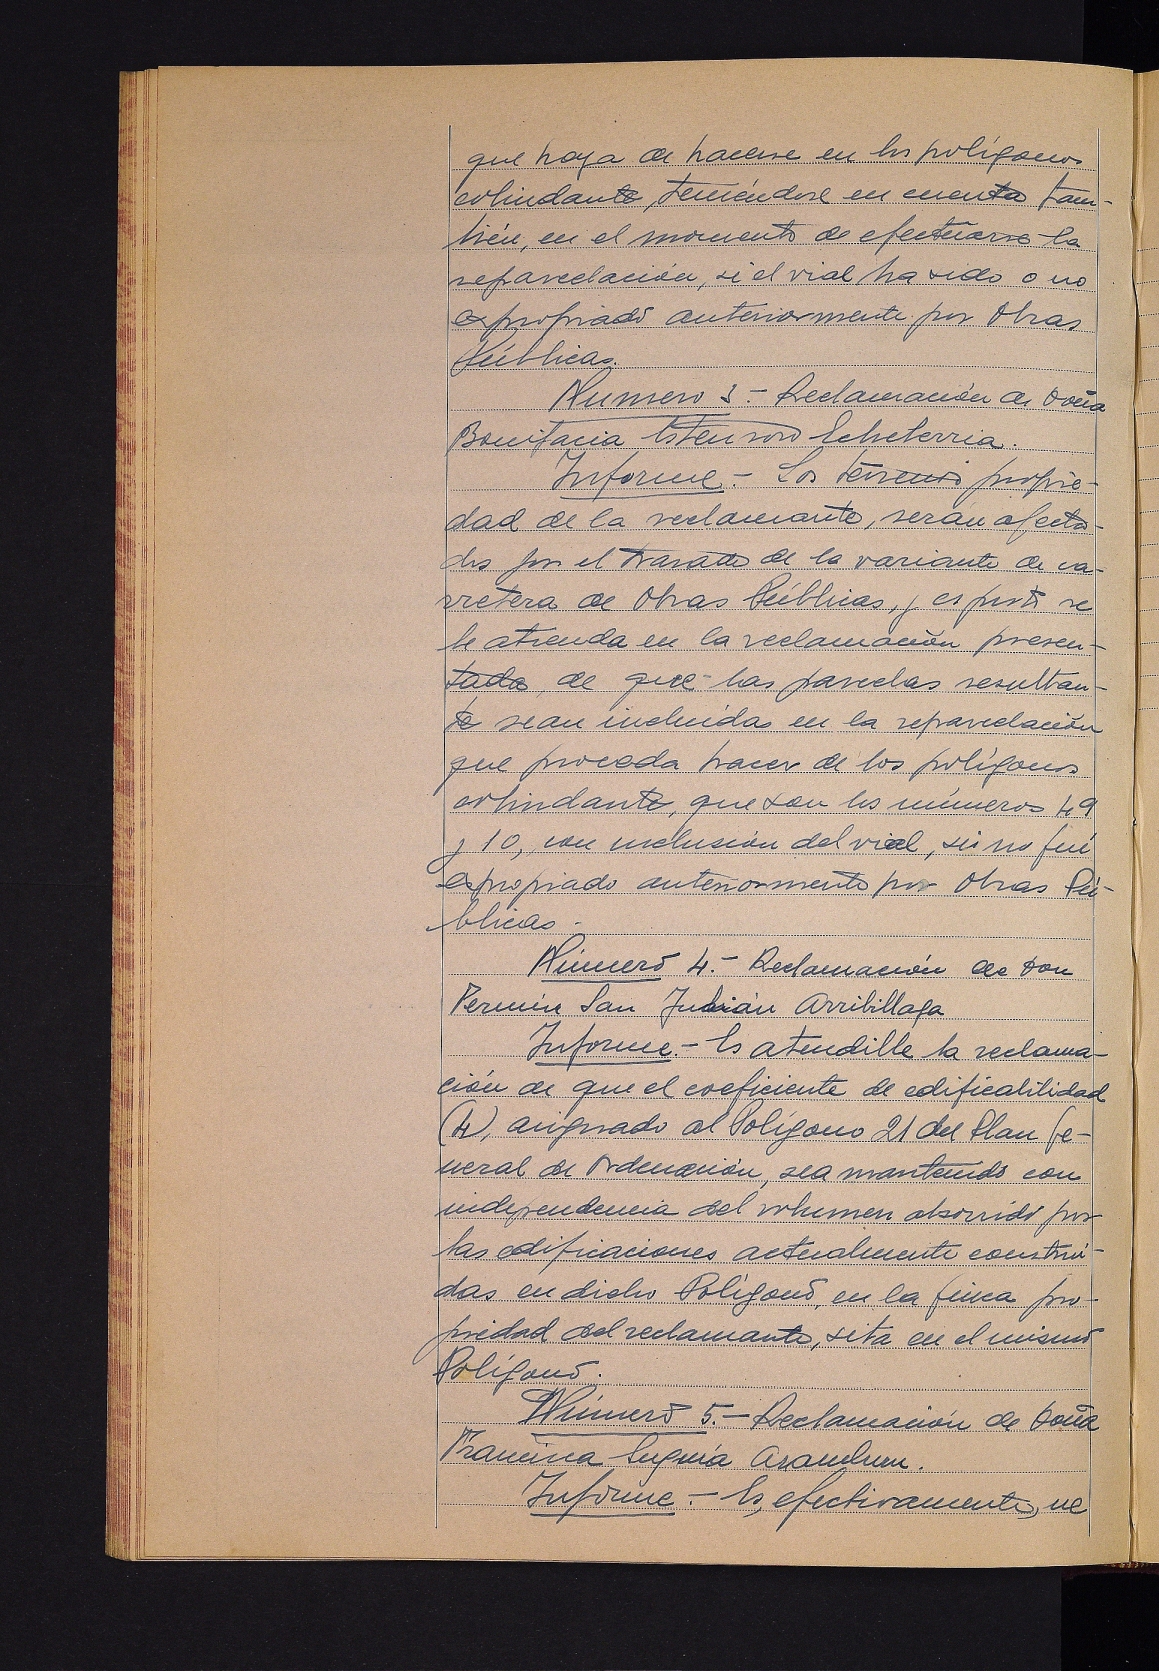 que haya de hacerse en los polígonos
colindante, teniéndose en cuenta tam-
bién, en el momento de efectuarse la
reparcelación, si el vial ha sido o no
expropiado anteriormente por Obras
Públicas.
Numero 3.- Reclamación de doña
Bonifacia Estensoro Echeterria.
Informe.- Los terrenos propie-
dad de la reclamante, serán afecta-
dos por el trazado de la variante de ca-
rretera de Obras Públicas, y es justo se
le atienda en la reclamación presen-
tada, de que las parcelas resultan-
te sean incluidas en la reparcelación
que proceda hacer de los polígonos
colindante, que son los números 49
y 10, con inclusión del vial, si no fué
expropiado anteriormente por Obras Pú-
blicas.-
Número 4.- Reclamación de don
Fermín San Julián Arribillaga
Informe.- Es atendible la reclama-
ción de que el coeficiente de edificabilidad
(4), asignado al Polígono 21 del Plan Ge-
neral de Ordenación, sea mantenido con
independencia del volumen absorvido por
las edificaciones actualmente construi-
das en dicho Polígono, en la finca pro-
piedad del reclamante, sita en el mismo
Polígono.
Número 5.- Reclamación de doña
Francisca Aramburu.
Informe.- Es, efectivamente, ne